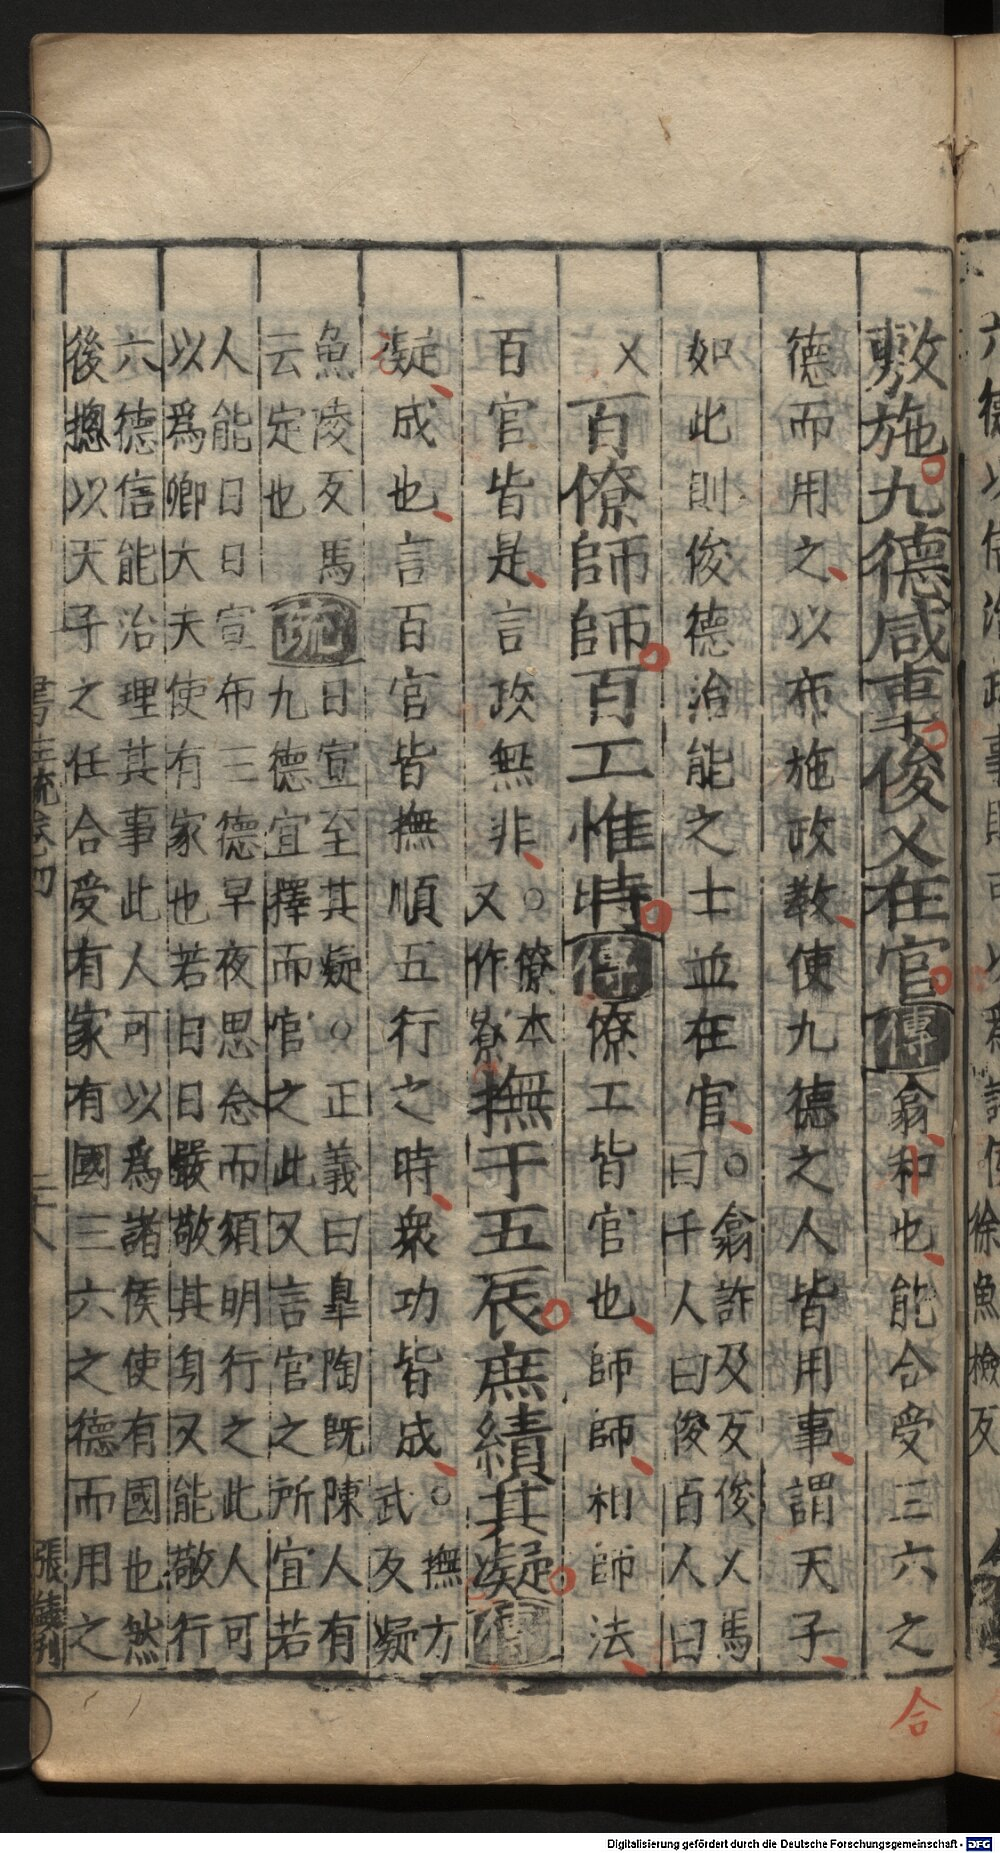 敷施九德咸事俊乂在官傳翕和也能合受三六之
德而用之以布施政教使九德之人皆用事謂天子
如此則俊德治能之士並在官○翕許及反俊乂馬
曰千人曰俊百人曰
乂百僚師師百工惟時傳僚工皆官也師師相師法
百官皆是言政無非○僚本
又作寮撫于五辰庶績其凝傳
凝成也言百官皆撫順五行之時衆功皆成○撫方
武反凝
魚凌反馬
云定也疏日宣至其凝○正義曰臯陶既陳人有
九德宜擇而官之此又言官之所宜若
人能日日宣布三德早夜思念而須明行之此人可
以爲卿大夫使有家也若日日嚴敬其身又能敬行
六德信能治理其事此人可以爲諸侯使有國也然
後揔以天子之任合受有家有國三六之德而用之
合
Digitalisierung gefördert durch die Deutsche Forschungsgemeinschaft - DFG